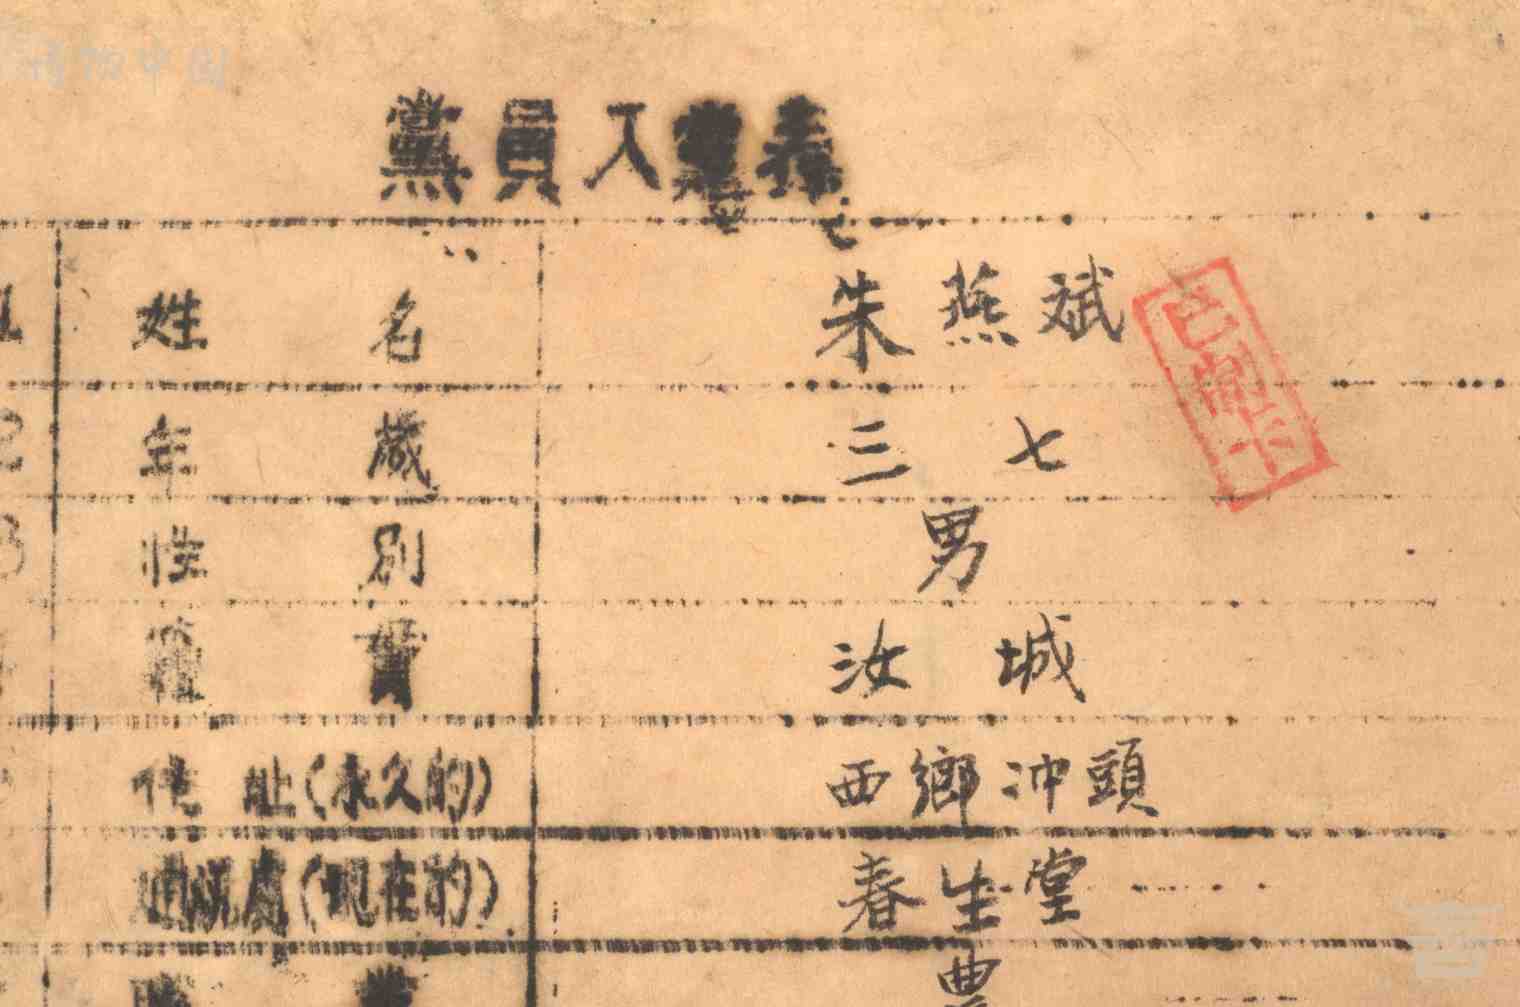 黨員入黨表
姓名 朱燕斌
年歲 三七
性別 男
籍貫 汝城
住址(永久的) 西鄉冲頭
通訊處(現在的) 春生堂
業 農